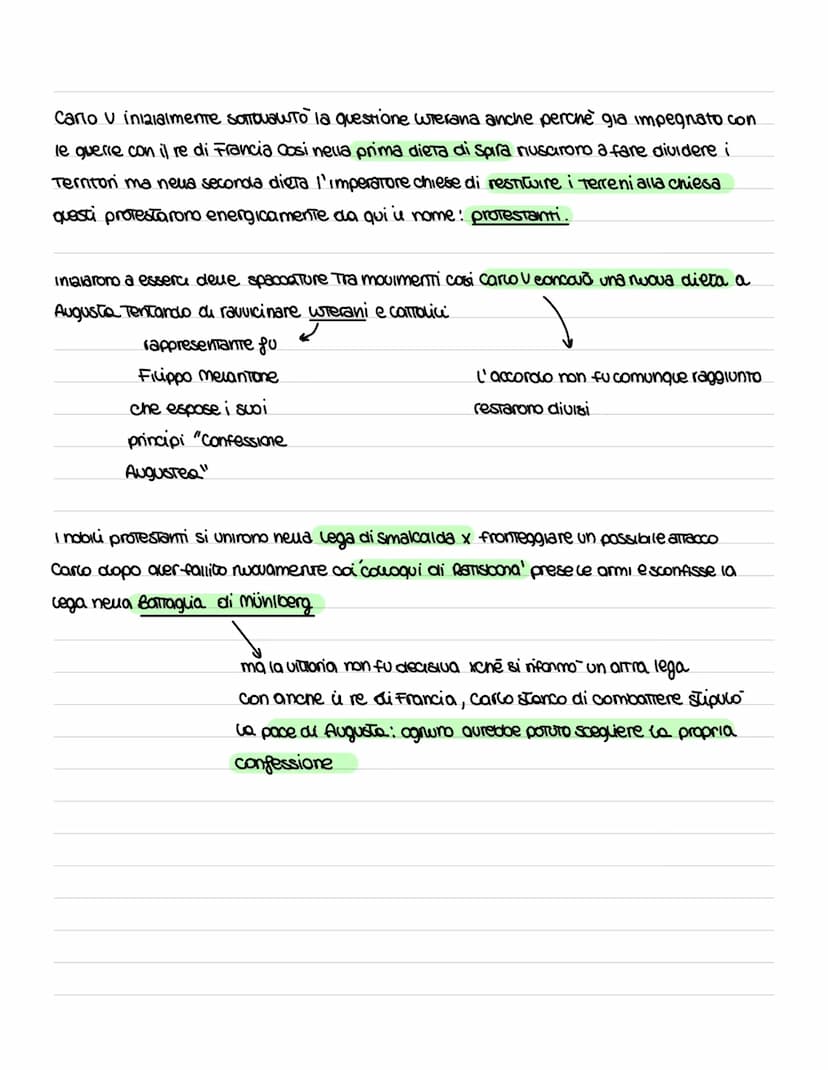 Carlo V inizialmente sottovalutò la questione luterana anche perchè già impegnato con
le guerre con il re di Francia Così nella prima dieta di Spira riuscirono a fare dividere i
Territori ma nella seconda dieta l'imperatore chiese di restituire i terreni alla chiesa
questi protestarono energicamente da qui il nome: protestanti.
Iniziarono a esserci delle spaccature tra movimenti così Carlo V convocò una nuova dieta a
Augusta Tentando di ravvicinare luterani e cattolici
rappresentante fu
Filippo Melantone
che espose i suoi
principi "Confessione
Augustea"
L'accordo non fu comunque raggiunto
restarono divisi
I nobili protestanti si unirono nella Lega di Smalcalda x fronteggiare un possibile attacco
Carlo dopo aver fallito nuovamente coi 'colloqui di Ratisbona' prese le armi e sconfisse la
Lega nella Battaglia di Münlberg
ma la vittoria non fu decisiva xchè si riformò un altra lega
con anche il re di Francia, Carlo stanco di combattere stipulò
la pace di Augusta: ognuno avrebbe potuto scegliere la propria
confessione